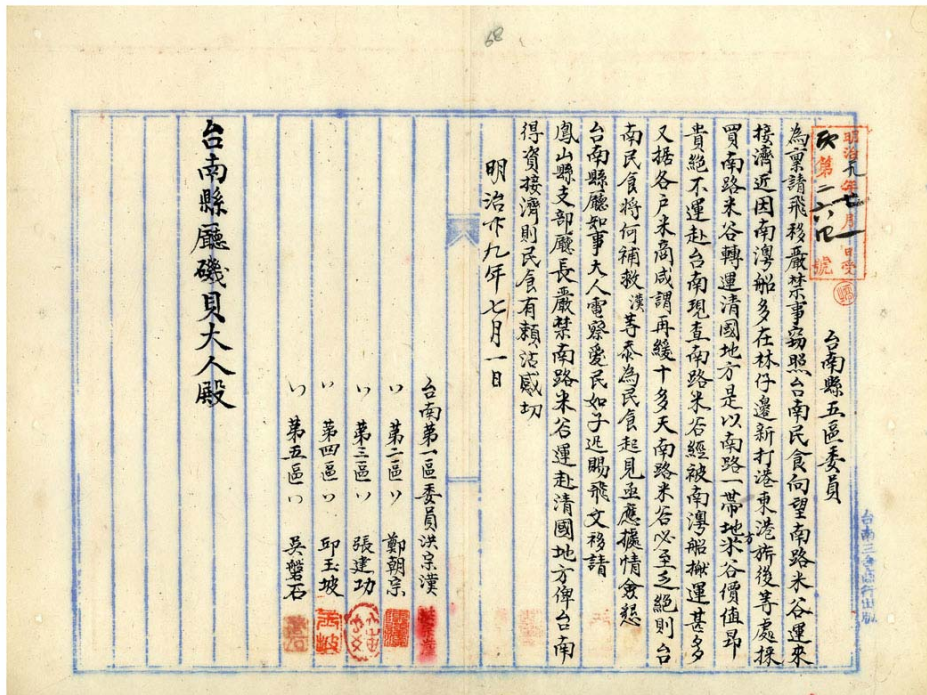 68
明治廿九年七月一日受
欠第二六八四號
台南縣五區委員
為稟請飛移嚴禁事竊照台南民食向望南路米谷運來
接濟近因南澚船多在林仔邊新打港東港旂後等處採
買南路米谷轉運清國地方是以南路一帶地方米谷價值昂
貴絕不運赴台南現查南路米谷經被南澚船搬運甚多
又據各戶米商咸謂再緩十多天南路米谷必至乏絕則台
南民食將何補救漢等忝為民食起見亟應據情僉懇
台南縣廳知事大人電察愛民如子迅賜飛文移請
鳳山縣支部廳長嚴禁南路米谷運赴清國地方俾台南
得資接濟則民食有賴沾感切
明治廿九年七月一日
台南第一區委員洪宗漢
〃第二區〃鄭朝宗
〃第三區〃張建功
〃第四區〃邱玉坡
〃第五區〃吳磐石
台南縣廳磯貝大人殿